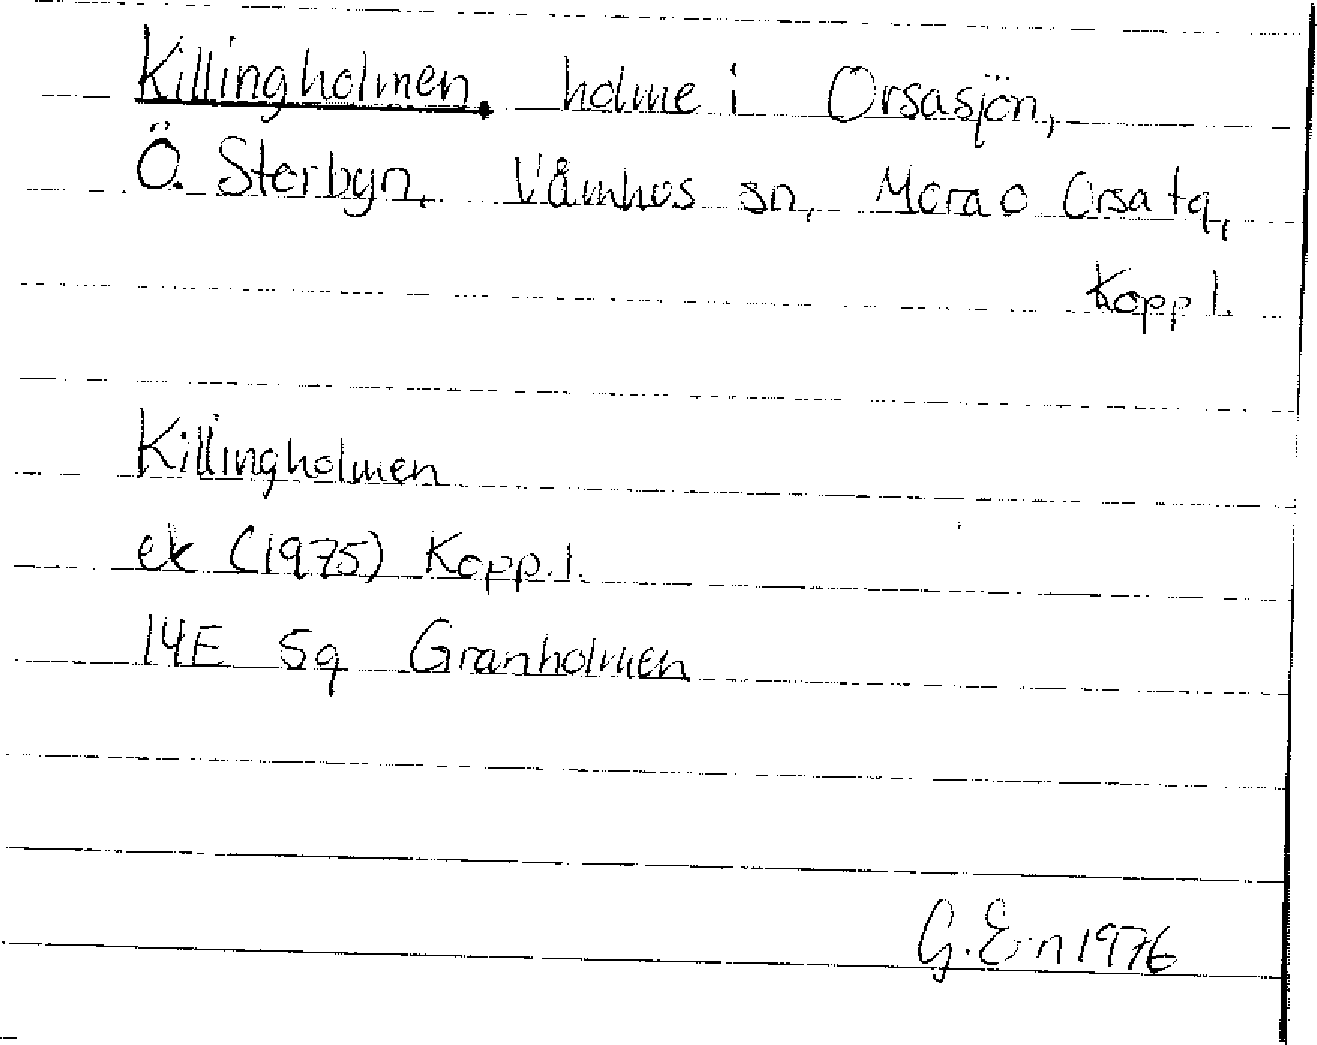 Killingholmen, holme i Orsasjön,
Ö. Storbyn, Våmhus sn, Mora o Orsa tg,
Kopp l.
Killingholmen
ek (1975) Kopp. l.
14E 5g Granholmen
G. E-n 1976